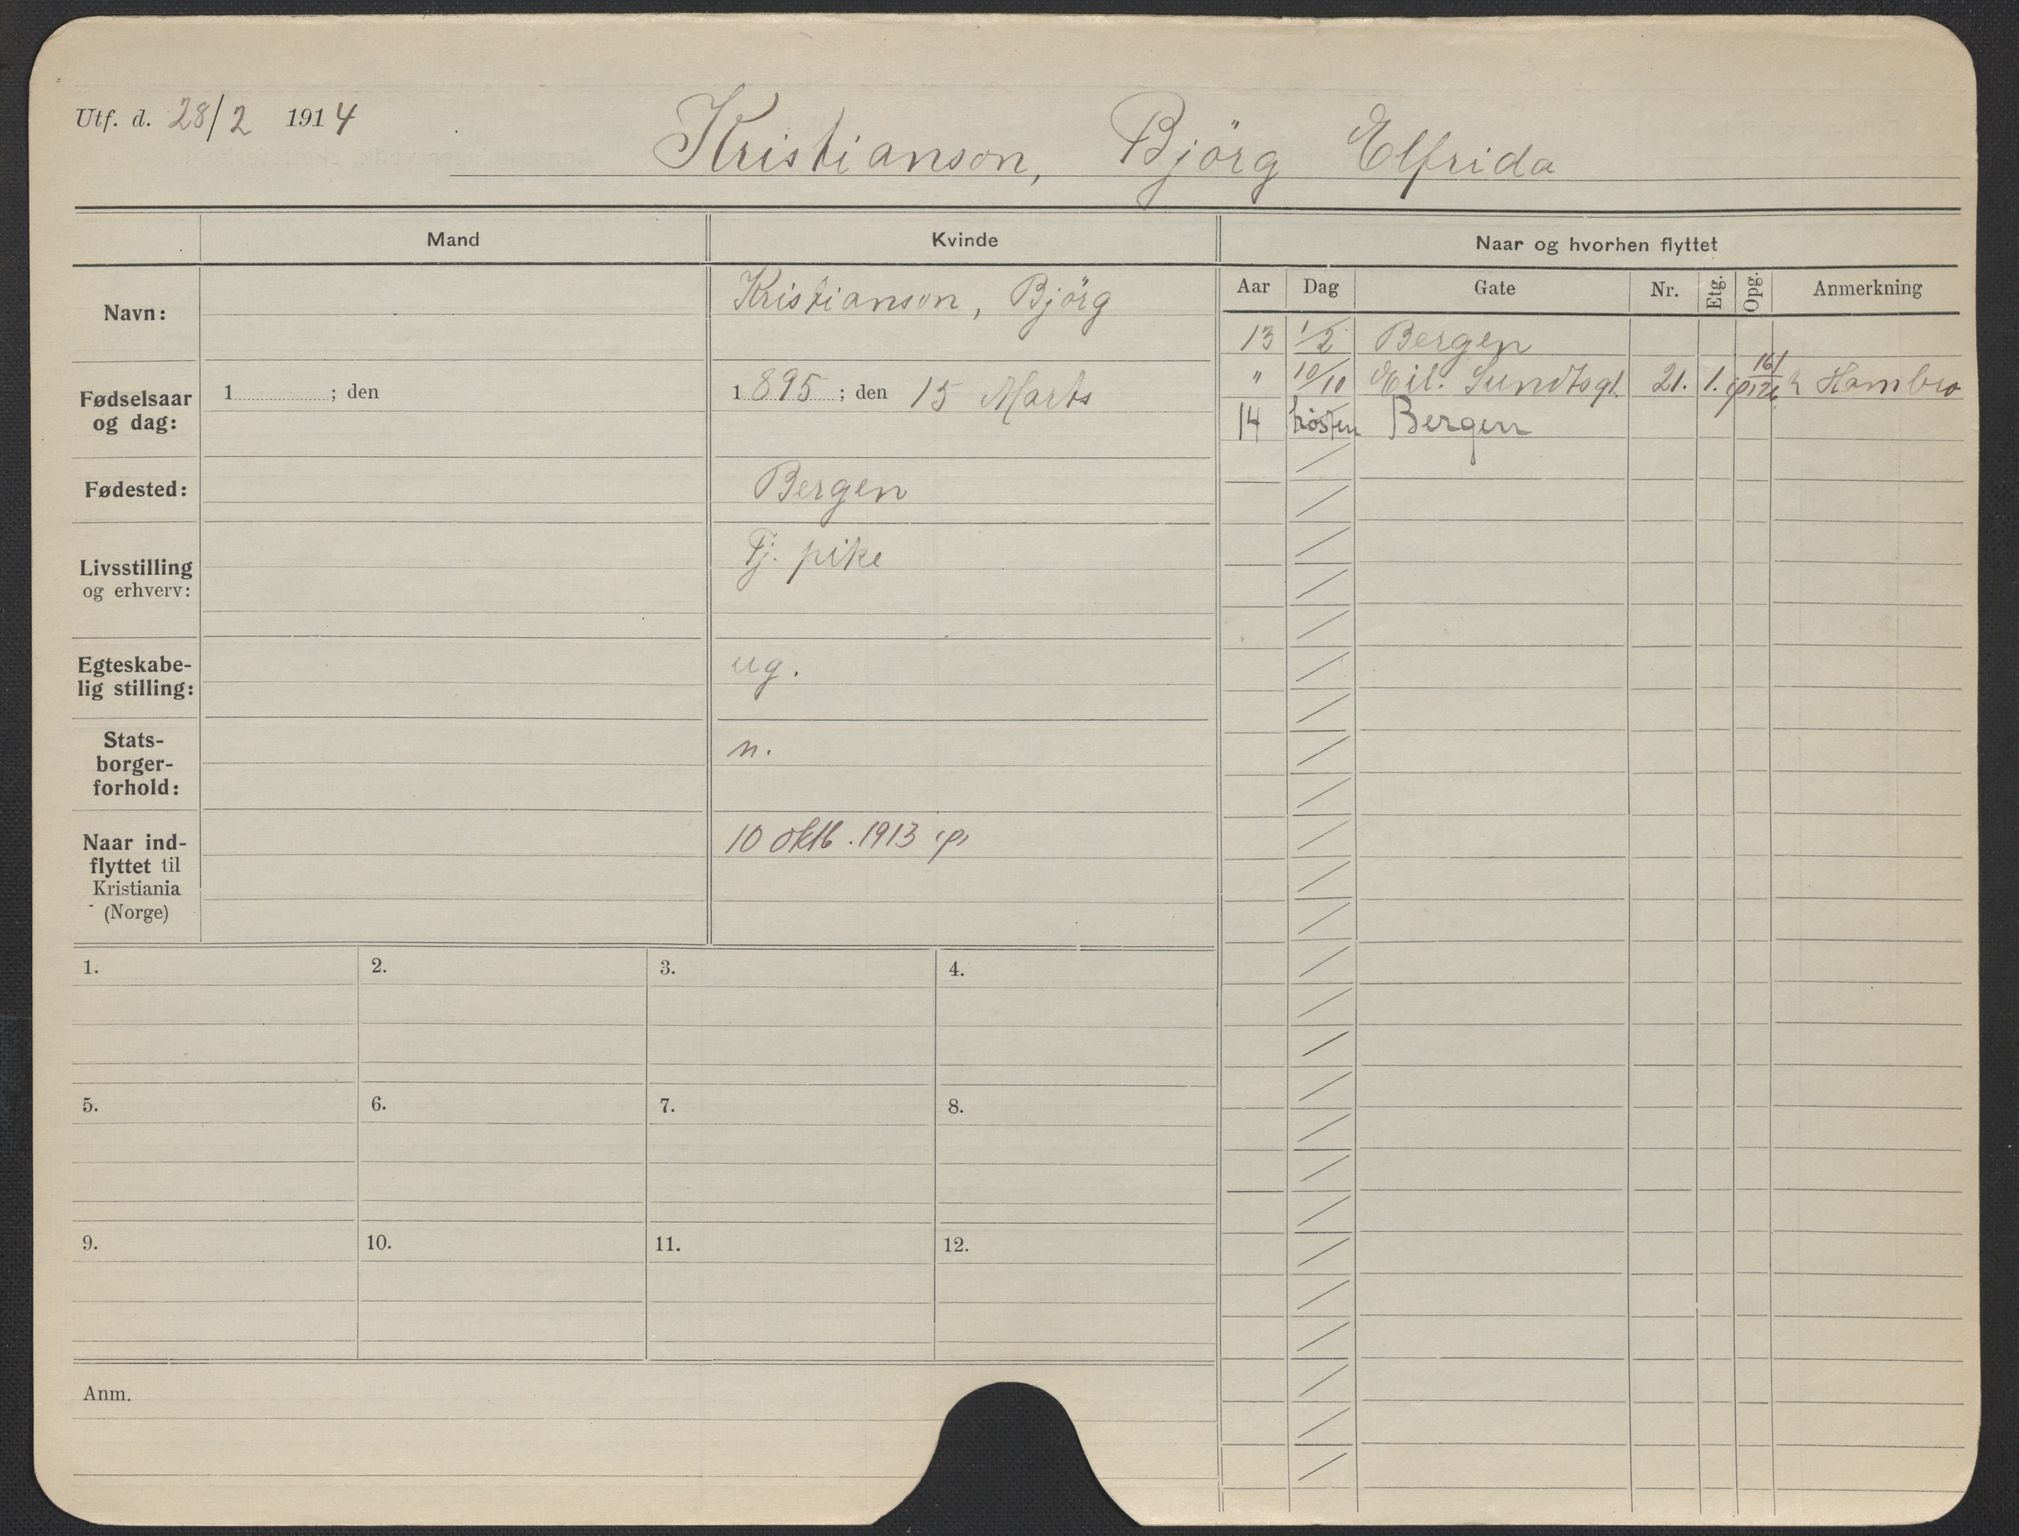 Utf. d. 28/2 1914
Kristianson, Björg Elfrida
Mand
Kvinde
Naar og hvorhen flyttet
Aar Dag Gate Nr. Etg. Opg. Anmerkning
Navn: Kristianson, Björg
Fødselsaar og dag: 1 ; den 1895 ; den 15 Marts
Fødested: Bergen
Livsstilling og erhverv: Tj. pike
Egteskabe-
lig stilling: ug.
Stats-
borger-
forhold: n.
Naar ind-
flyttet til
Kristiania
(Norge) 10 oktb. 1913
13 1/2 Bergen
" 10/10 Eil. Sundtsgt. 21. 1. Hambro
14 høsten Bergen
1. 2. 3. 4.
5. 6. 7. 8.
9. 10. 11. 12.
Anm.